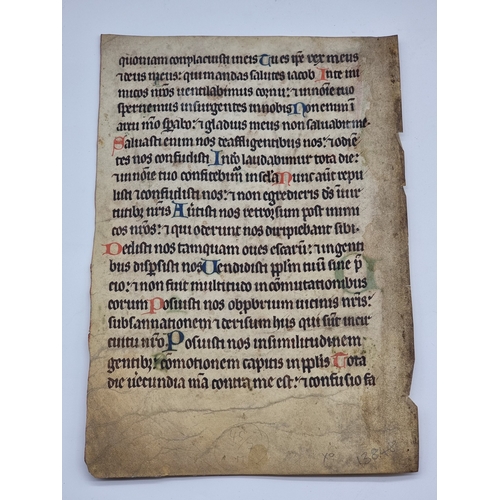 quoniam conplacuisti in eis Tu es ip̄e rex meus
⁊ deus meus: qui mandas salutes iacob In te ini
micos nr̄os uentilabimus cornu: ⁊ in nōie tuo
spernemus insurgentes in nobis Non enim ī
arcu mō sp̄abo: ⁊ gladius meus non saluabit me
Saluasti enim nos de affligentibus nos: ⁊ odiē
tes nos confudisti In dō laudabimur tota die:
⁊ in nōie tuo confitebim̄ in sc̄la Nunc aūt repu
listi ⁊ confudisti nos: ⁊ non egredieris dš ī uir
tutibꝫ nr̄is Aūtisti nos retrorsum post inimi
cos nr̄os: ⁊ qui oderunt nos diripiebant sibi
Dedisti nos tamquam oues escarū: ⁊ in genti
bus disp̄sisti nos Uendidisti ip̄lm tuū sine p̄
cio: ⁊ non fuit multitudo in cōmutationibus
eorum Posuisti nos obp̄brium uicinis nr̄is:
subsannationem ⁊ derisum hiis qui sūt in cir
cuitu nr̄o Posuisti nos in similitudinem
gentibꝫ: cōmotionem capitis in ip̄lis Tota
die uerecundia mā contra me est: ⁊ confusio fa